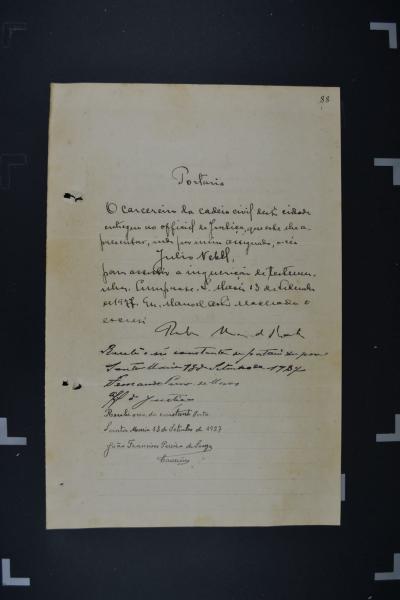 88
Portaria
O carcereiro da cadeia civil desta cidade
entregue ao official de Justiça, que este lhe a-
presentar, indo por mim assignado, o réo
Julio
para assistir a inquerição de testemu-
nhas. Cumpra-se. S. Maria 13 de Setembro
de 1937. Eu, Machado o
escrevi
Recebi o réo constante da portaria
Santa Maria 13 de Setembro de 1937
Off. de Justiça
Recebi o réo constante
Santa Maria 13 de Setembro de 1937
João Francisco Pereira de Souza
Carcereiro